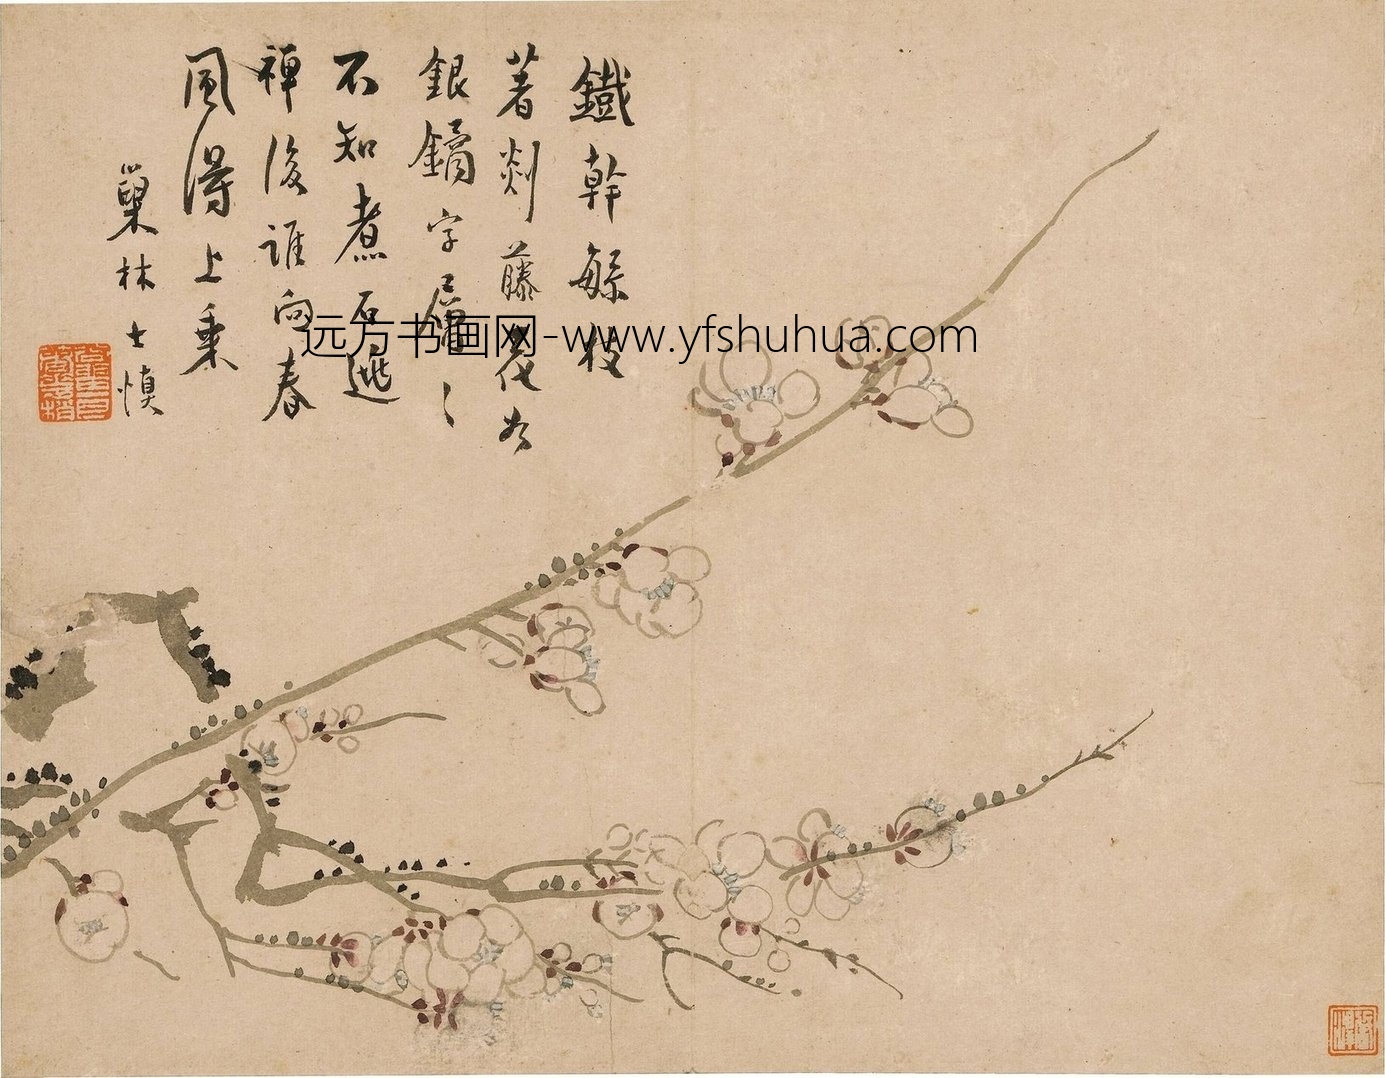 鐵幹繇枝
著剡藤幾為
銀鏑字層〻
不知煮石逃
禅後誰向春
風得上乘
巢林士慎
远方书画网-www.yfshuhua.com